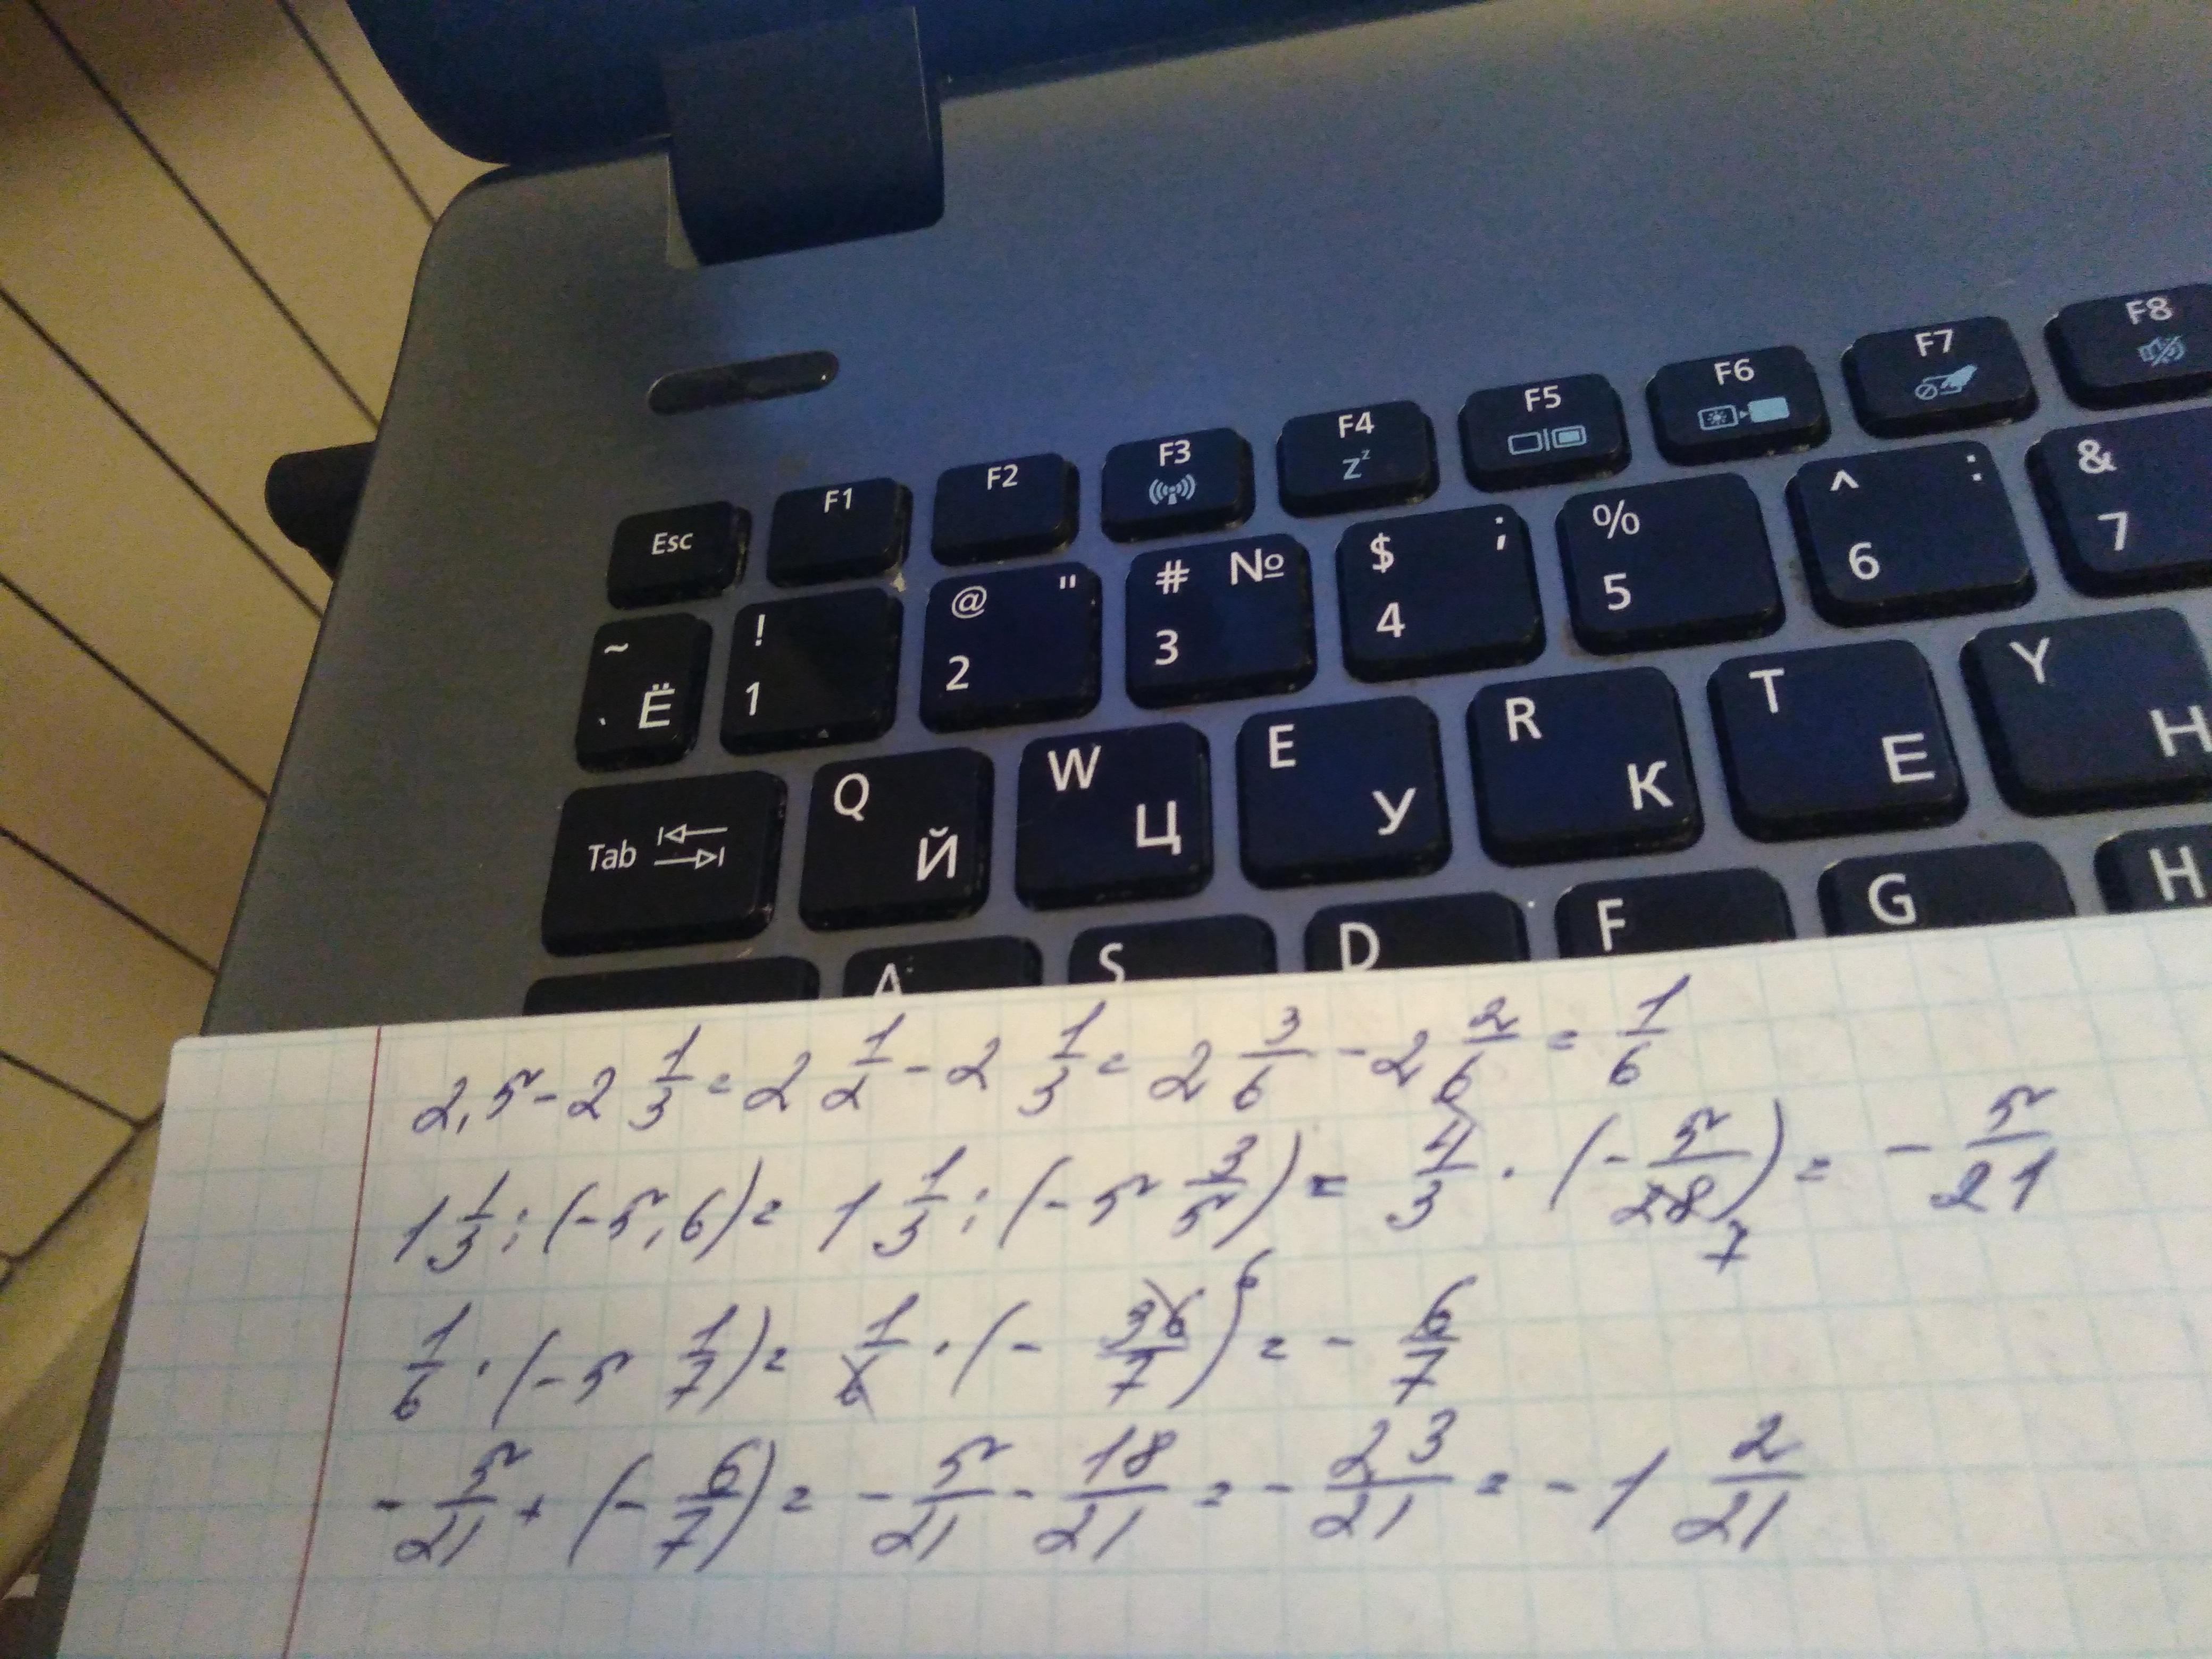 Esc F1 F2 F3 F4 Zz F5 F6 F7 F8
~ ` Ё ! 1 @ " 2 # № 3 $ ; 4 % 5 ^ : 6 & 7
Tab Q Й W Ц E У R К T Е Y Н
A S D F G H
2,5 - 2 1/3 = 2 1/2 - 2 1/3 = 2 3/6 - 2 2/6 = 1/6
1 1/3 : (-5,6) = 1 1/3 : (-5 3/5) = 4/3 · (-5/28) = -5/21
7
1/6 · (-5 1/7) = 1/6 · (-36/7) 6 = -6/7
-5/21 + (-6/7) = -5/21 - 18/21 = -23/21 = -1 2/21